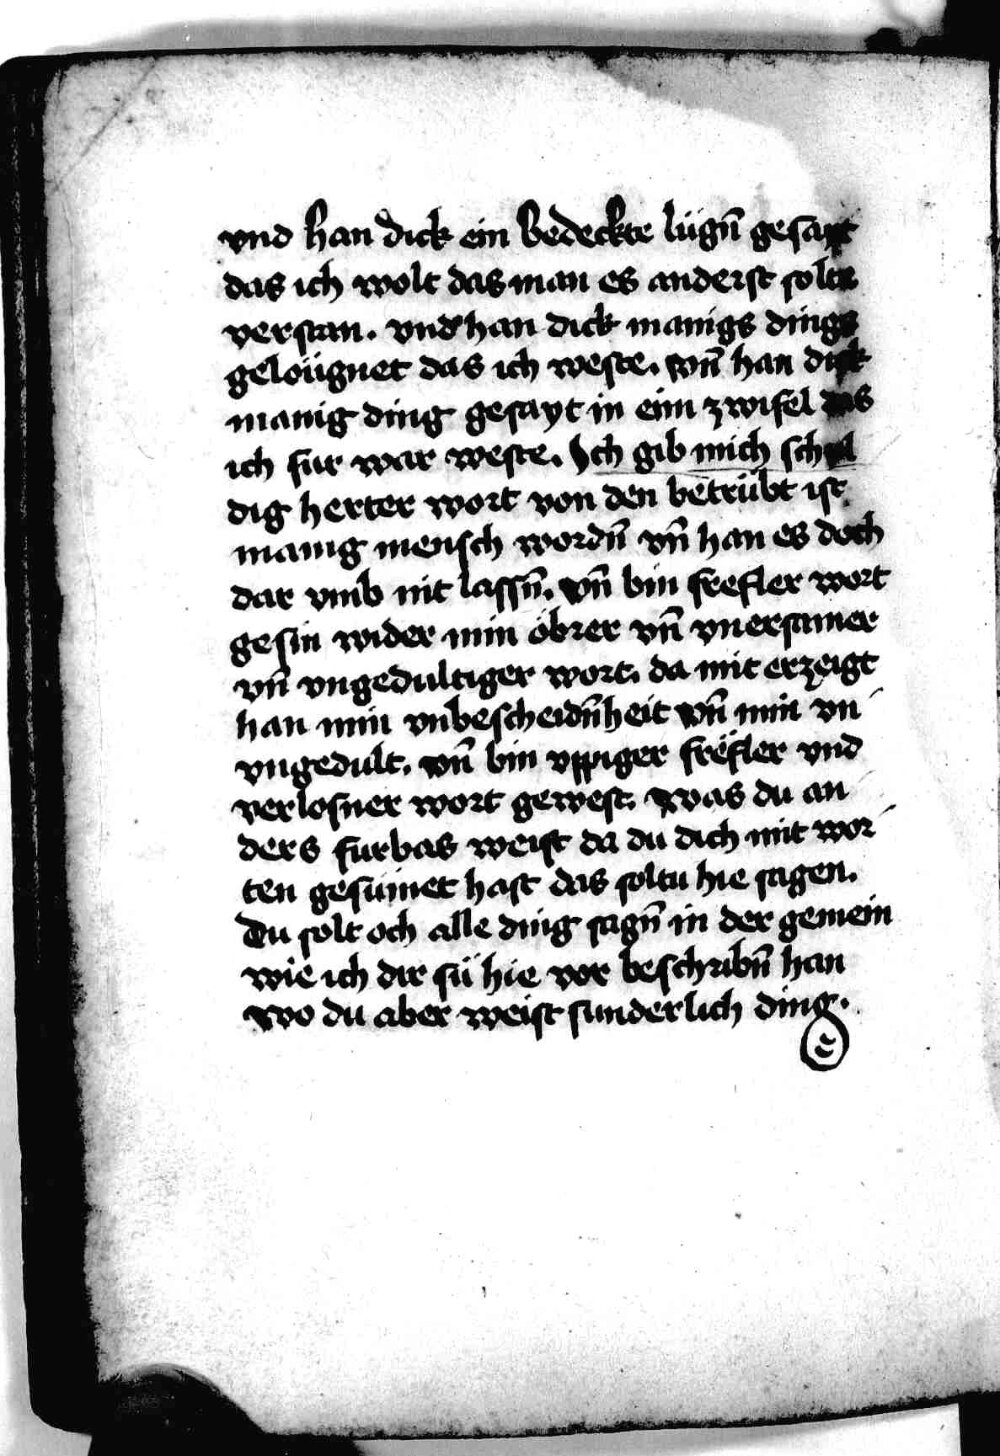 vnd han dick ein bedeckte lügn̄ gesayt
das ich wolt das man es anderst solte
verstan. vnd han dick manigs dings
geloügnet das ich weste. vn̄ han dick
manig ding gesayt in eim zwifel das
ich fur war weste. Ich gib mich schul
dig herter wort von den betrübt ist
manig mensch wordn̄ vn̄ han es doch
dar vmb nit lassn̄. vn̄ bin frefler wort
gesin wider min öbrer vn̄ vnersamer
vn̄ vngedultiger wort. da mit erzeigt
han min vnbescheidn̄heit vn̄ min vn
vngedult. vn̄ bin vppiger frëfler vnd
verlosner wort gewest. was du an
ders furbas weist da du dich mit wor
ten gesümet hast das soltu hie sagen.
Du solt och alle ding sagn̄ in der gemein
wie ich dir sü hie vor beschribn̄ han
wo du aber weist sunderlich ding.